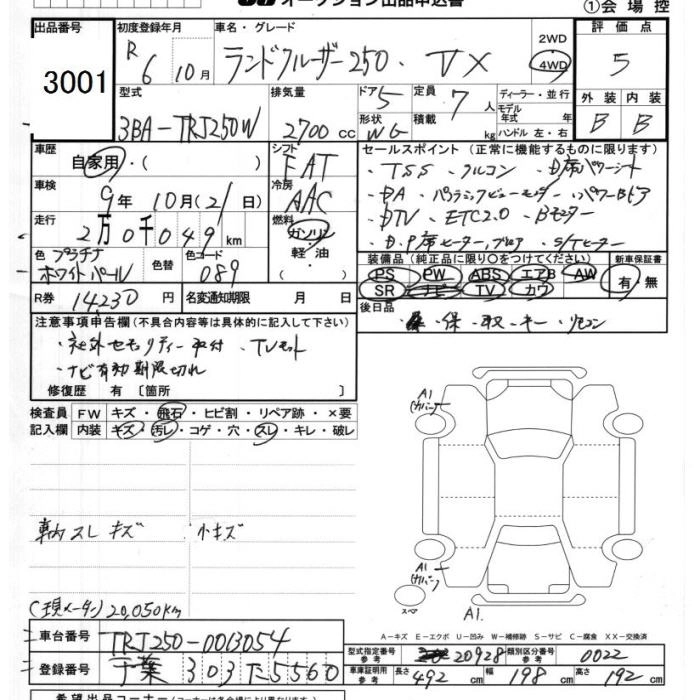 オークション出品申込書
①会場控
出品番号 3001
初度登録年月 R6 10月
車名・グレード ランドクルーザー250・VX
2WD
4WD
評価点 5
外装 B 内装 B
型式 3BA-TRJ250W
排気量 2700 cc
ドア 5
形状 WG
定員 7 人
積載 kg
ディーラー・並行
モデル年式 年式
ハンドル 左・右
車歴 自家用・( )
シフト FAT
冷房 AAC
燃料 ガソリン 軽油 ・( )
車検 9年 10月(21日)
走行 2万0千049 km
色 プラチナホワイトパール
色替
色コード 089
R券 14,230 円
名変通知期限 月 日
セールスポイント (正常に機能するものに限ります)
・TSS・クルコン・D席パワーシート
・BA・パラミックビューモニター・パワーBドア
・DTV・ETC2.0・Bモニター
・D.P席ヒーター,ブロア・S/Tヒーター
装備品(純正品に限り○をつけてください)
PS PW ABS エアB AW
SR ナビ TV カワ
新車保証書
有・無
後日品
・保・取・キー・リモコン
注意事項申告欄(不具合内容等は具体的に記入して下さい)
・社外セキュリティー取付・TVキット
・ナビ有効期限切れ
修復歴 有 〔箇所 〕
検査員記入欄
FW キズ・飛石・ヒビ割・リペア跡・×要
内装 キズ・汚レ・コゲ・穴・スレ・キレ・破レ
車内スレキズ 小キズ
(現メーター) 20,050km
A1
A1
スペア
A1.
A-キズ E-エクボ U-凹み W-補修跡 S-サビ C-腐食 XX-交換済
車台番号 TRJ250-0013054
登録番号 千葉 303 た 5560
型式指定番号 参考 20928
類別区分番号 参考 0022
車庫証明用参考 長さ 492 cm 幅 198 cm 高さ 192 cm
希望出品コーナー